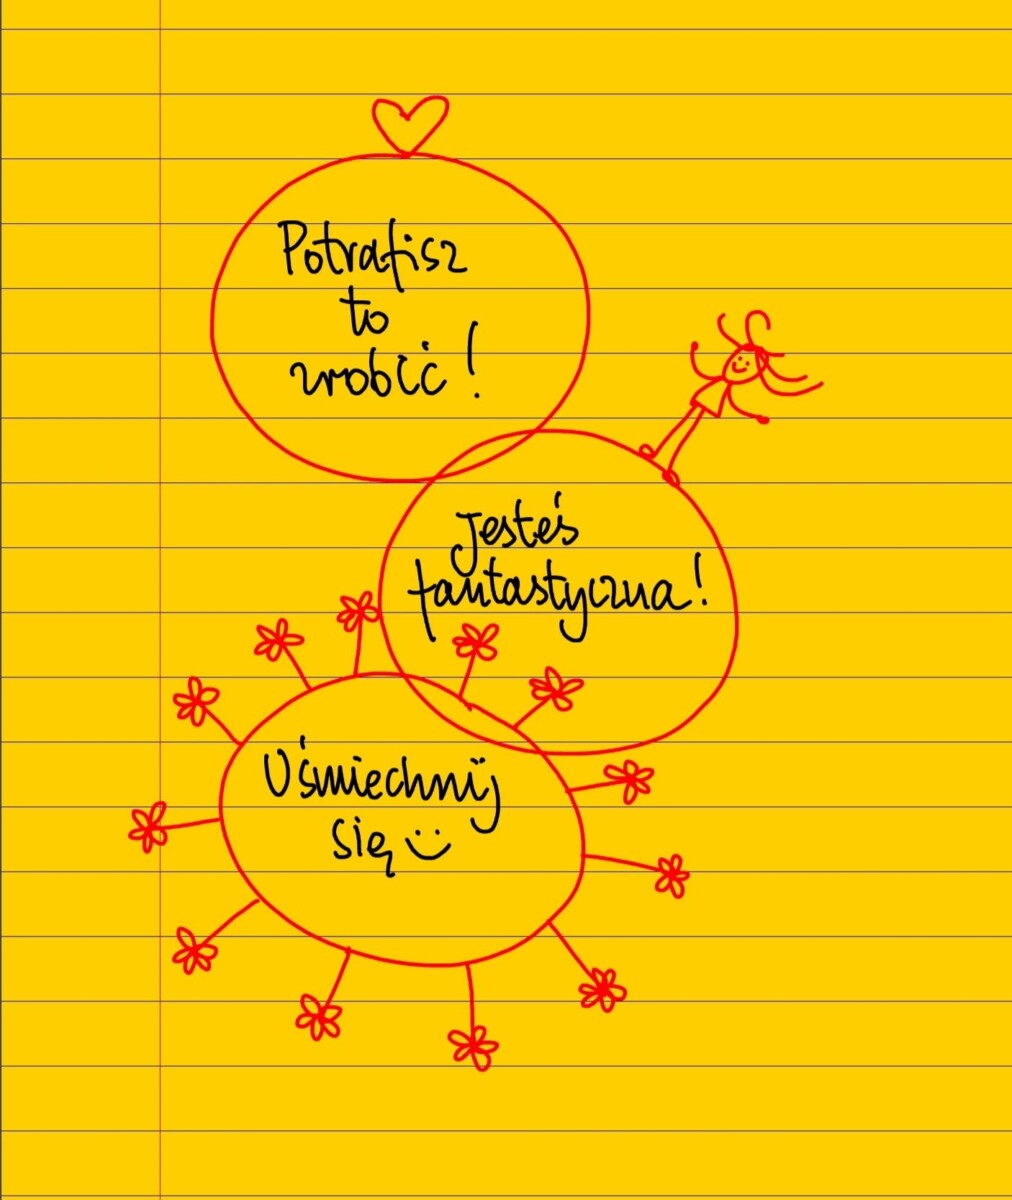 Potrafisz
to
zrobić!
Jesteś
fantastyczna!
Uśmiechnij
się :)